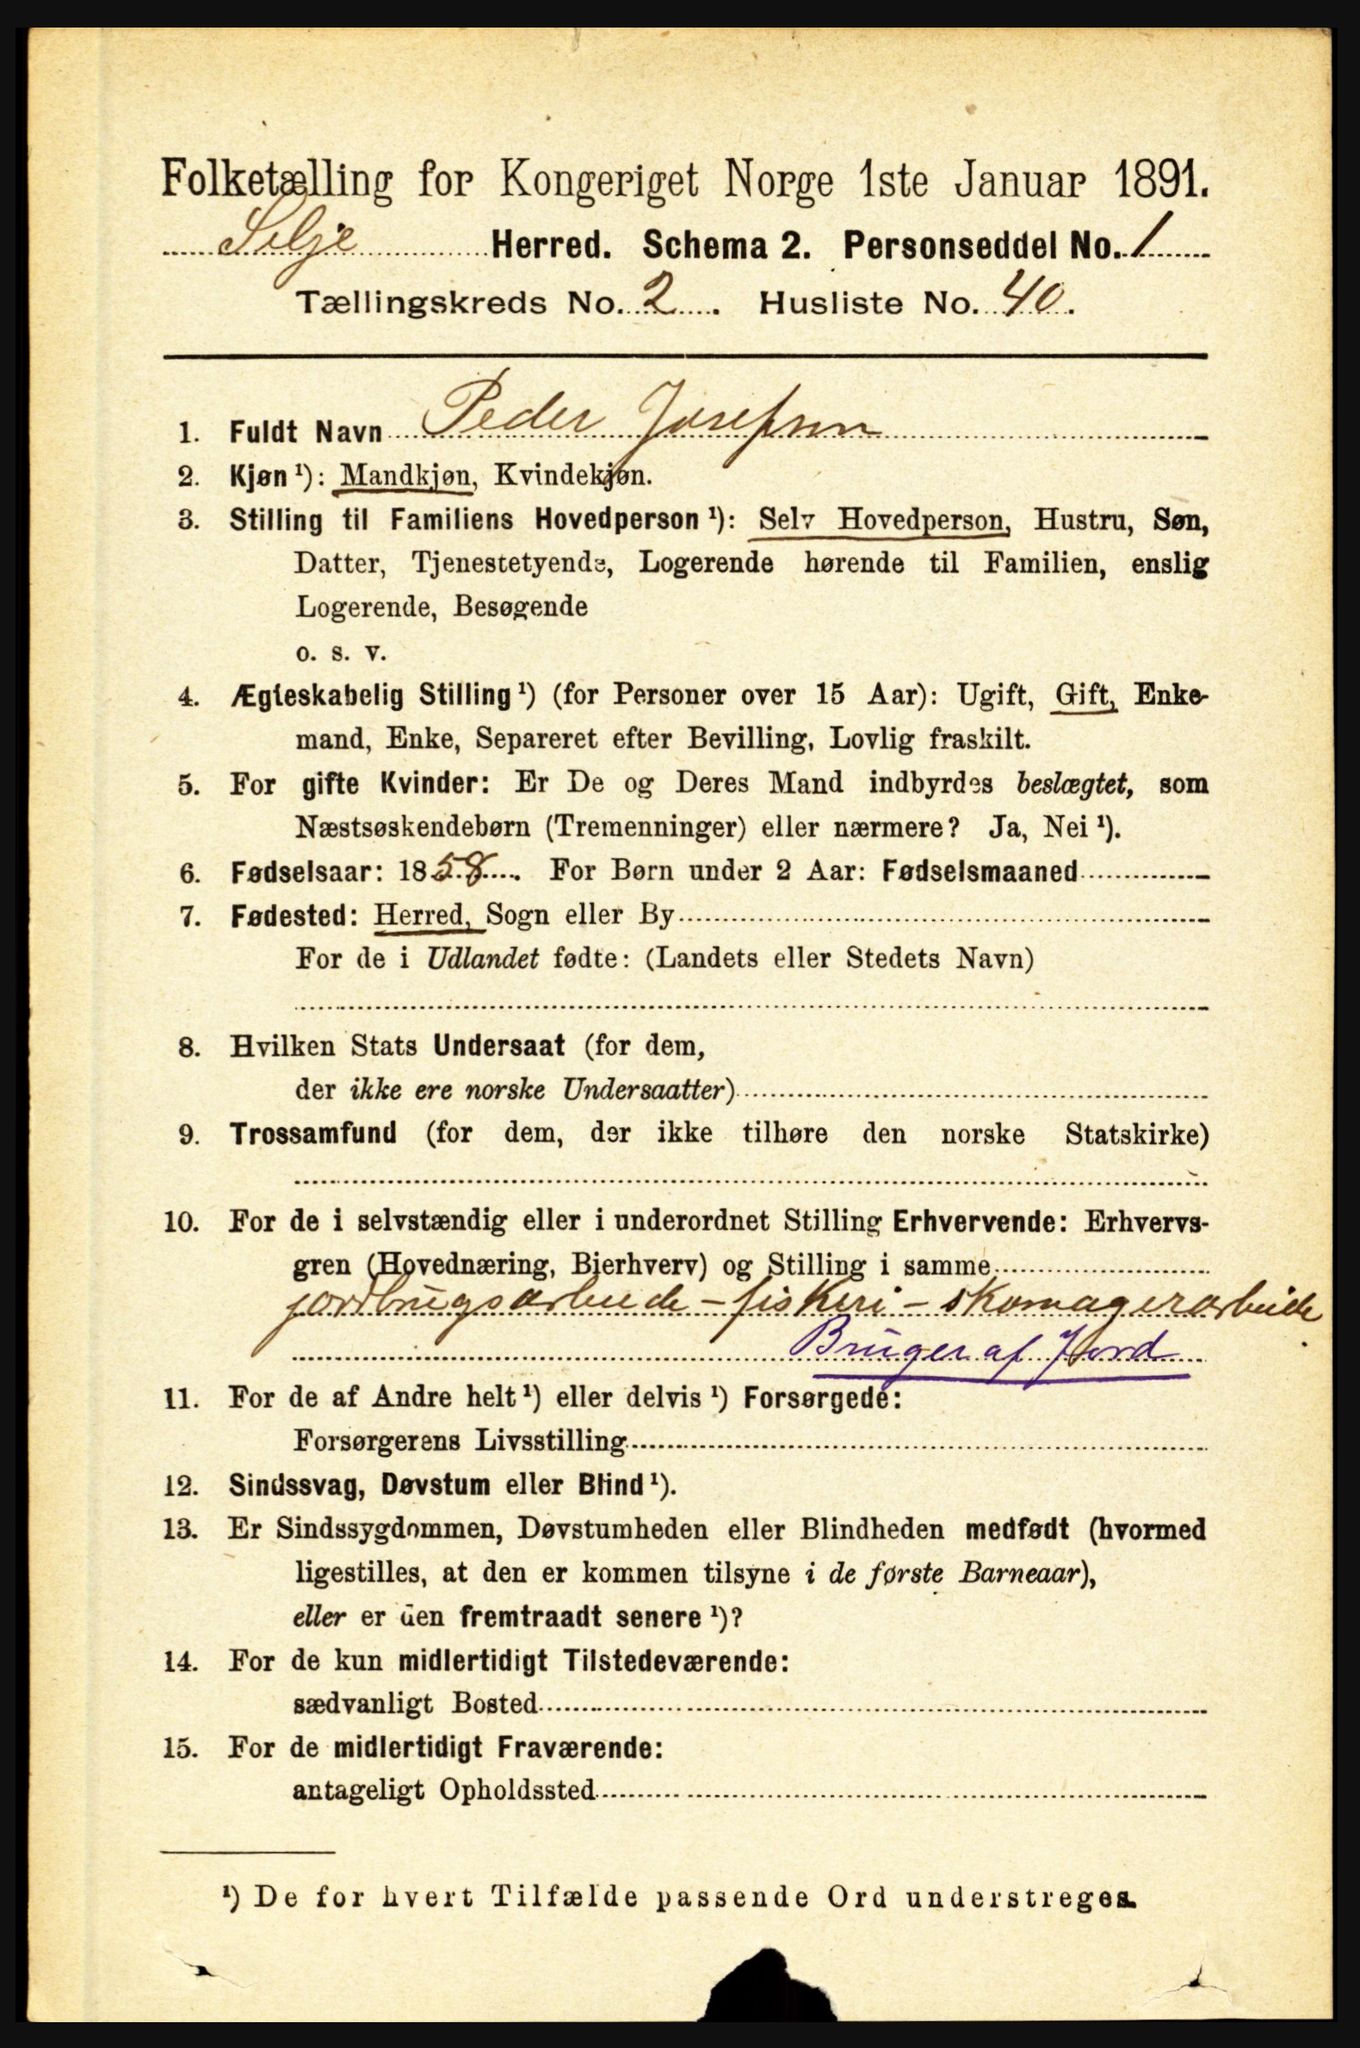 Folketælling for Kongeriget Norge 1ste Januar 1891.
Selje Herred. Schema 2. Personseddel No. 1
Tællingskreds No. 2. Husliste No. 40.
1. Fuldt Navn Peder Josefsen
2. Kjøn¹): Mandkjøn, Kvindekjøn.
3. Stilling til Familiens Hovedperson¹): Selv Hovedperson, Hustru, Søn,
Datter, Tjenestetyende, Logerende hørende til Familien, enslig
Logerende, Besøgende
o. s. v.
4. Ægteskabelig Stilling¹) (for Personer over 15 Aar): Ugift, Gift, Enke-
mand, Enke, Separeret efter Bevilling, Lovlig fraskilt.
5. For gifte Kvinder: Er De og Deres Mand indbyrdes beslægtet, som
Næstsøskendebørn (Tremenninger) eller nærmere? Ja, Nei¹).
6. Fødselsaar: 1858. For Børn under 2 Aar: Fødselsmaaned
7. Fødested: Herred, Sogn eller By
For de i Udlandet fødte: (Landets eller Stedets Navn)
8. Hvilken Stats Undersaat (for dem,
der ikke ere norske Undersaatter)
9. Trossamfund (for dem, der ikke tilhøre den norske Statskirke)
10. For de i selvstændig eller i underordnet Stilling Erhvervende: Erhvervs-
gren (Hovednæring, Bierhverv) og Stilling i samme
jordbrugsarbeide - fiskeri - skomagerarbeide
Bruger af Jord
11. For de af Andre helt¹) eller delvis¹) Forsørgede:
Forsørgerens Livsstilling
12. Sindssvag, Døvstum eller Blind¹).
13. Er Sindssygdommen, Døvstumheden eller Blindheden medfødt (hvormed
ligestilles, at den er kommen tilsyne i de første Barneaar),
eller er den fremtraadt senere¹)?
14. For de kun midlertidigt Tilstedeværende:
sædvanligt Bosted
15. For de midlertidigt Fraværende:
antageligt Opholdssted
¹) De for hvert Tilfælde passende Ord understreges.